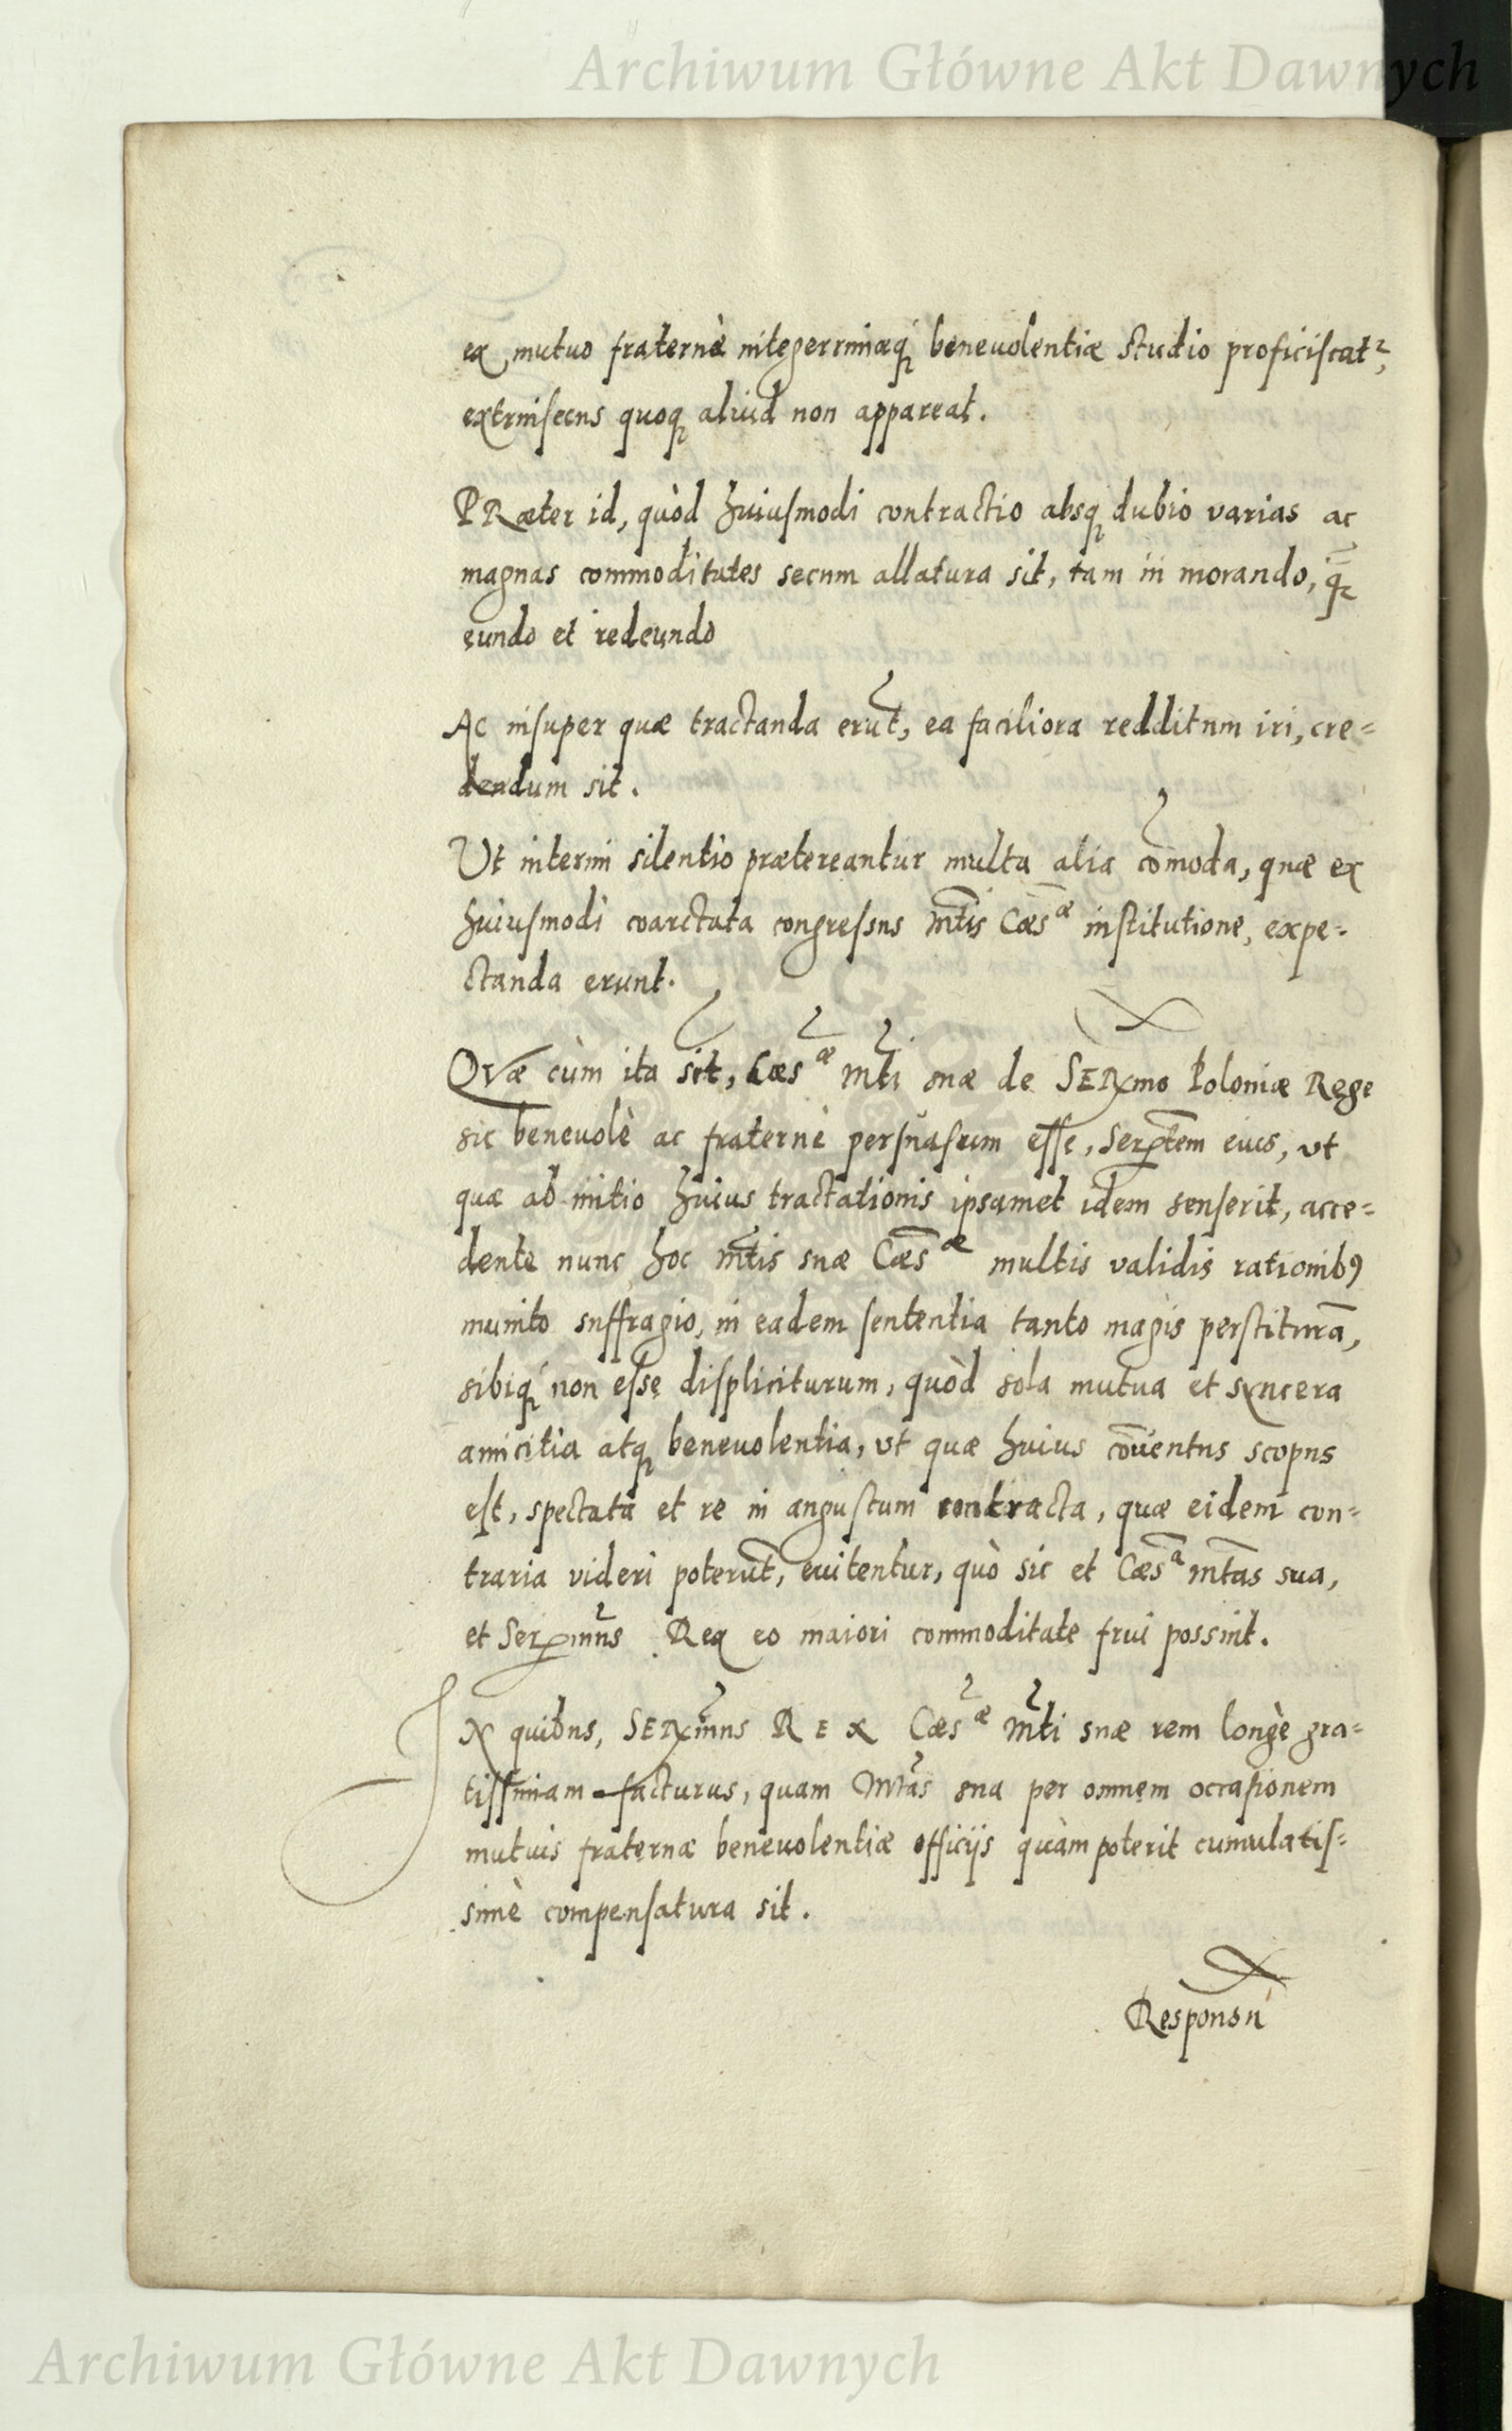 Archiwum Główne Akt Dawnych
ex mutuo fraternè integerrimæq́ beneuolentiæ studio proficiscat²,
extrinsecus quoq aliud non appareat.
PRæter id, quòd huiusmodi contractio absq dubio varias ac
magnas commoditates secum allatura sit, tam in morando, q̃
eundo et redeundo
Ac insuper quæ tractanda erũt, ea faciliora redditum iri, cre=
dendum sit.
Ut interim silentio prætereantur multa alia cõmoda, quæ ex
huiusmodi coarctata congressus Mtis Cæs æ institutione, expe=
ctanda erunt.
QVæ cùm ita sit, Cæs æ Mti suæ de SERmo Poloniæ Rege
sic beneuolè ac fraternè persuasum esse, Sertem eius, vt
quæ ab initio huius tractationis ipsamet idem senserit, acce=
dente nunc hoc Mtis suæ Cæs æ multis validis rationib9
munito suffragio, in eadem sententia tanto magis perstiturã,
sibiq́ non esse displiciturum, quòd sola mutua et syncera
amicitia atq beneuolentia, vt quæ huius cõuentus scopus
est, spectata et re in angustum contracta, quæ eidem con=
traria videri poterũt, euitentur, quò sic et Cæs a Mtas sua,
et Sermus Rex eo maiori commoditate frui possint.
IN quibus, SERmus REX Cæs æ Mti suæ rem longè gra=
tissimam facturus, quam Mtas sua per omnem occasionem
mutuis fraternæ beneuolentiæ officijs quàm poterit cumulatis=
simè compensatura sit.
Responsũ
Archiwum Główne Akt Dawnych